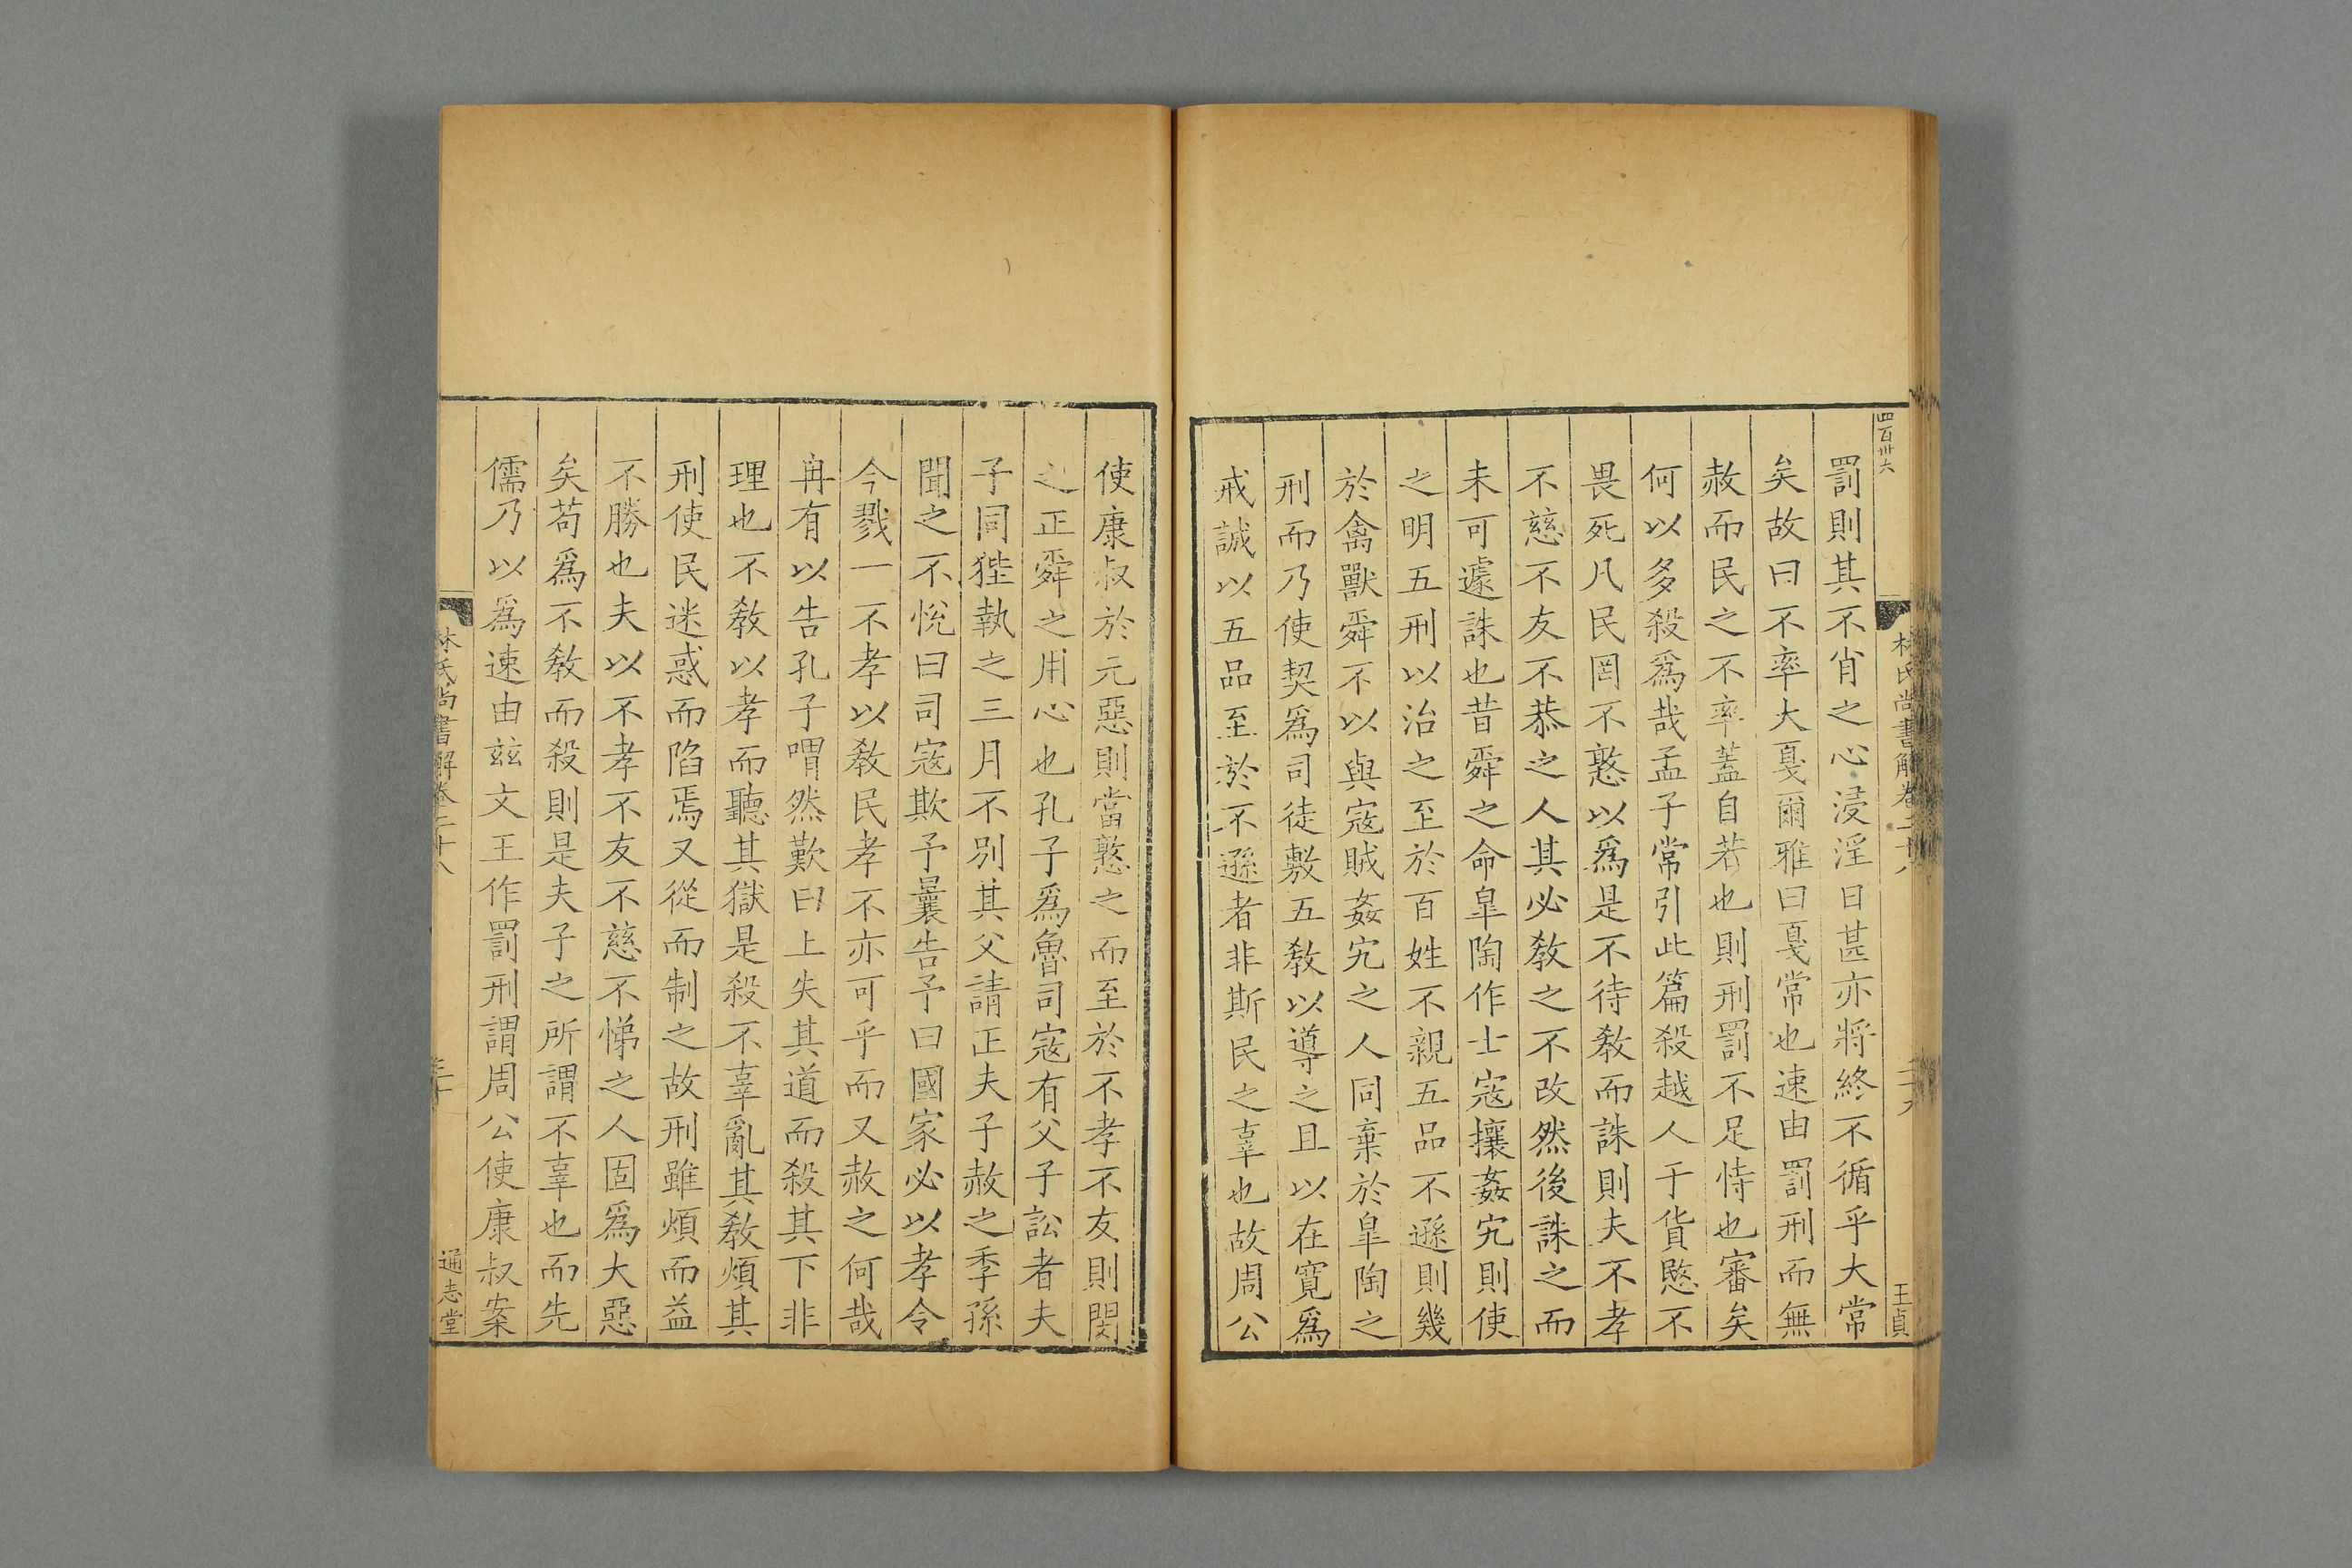 四百卅六
林氏尚書解卷二十八
王貞
罰則其不肖之心浸淫日甚亦將終不循乎大常
矣故曰不率大戛爾雅曰戛常也速由罰刑而無
赦而民之不率蓋自若也則刑罰不足恃也審矣
何以多殺爲哉孟子常引此篇殺越人于貨愍不
畏死凡民罔不憝以爲是不待教而誅則夫不孝
不慈不友不恭之人其必教之不改然後誅之而
未可遽誅也昔舜之命皐陶作士寇攘姦宄則使
之明五刑以治之至於百姓不親五品不遜則幾
於禽獸舜不以與寇賊姦宄之人同棄於皐陶之
刑而乃使契爲司徒敷五教以導之且以在寬爲
戒誠以五品至於不遜者非斯民之辜也故周公
使康叔於元惡則當憝之而至於不孝不友則閔
之正舜之用心也孔子爲魯司寇有父子訟者夫
子同狴執之三月不別其父請正夫子赦之季孫
聞之不悅曰司寇欺予曩告予曰國家必以孝令
今戮一不孝以教民孝不亦可乎而又赦之何哉
冉有以告孔子喟然歎曰上失其道而殺其下非
理也不教以孝而聽其獄是殺不辜亂其教煩其
刑使民迷惑而陷焉又從而制之故刑雖煩而益
不勝也夫以不孝不友不慈不悌之人固爲大惡
矣苟爲不教而殺則是夫子之所謂不辜也而先
儒乃以爲速由玆文王作罰刑謂周公使康叔案
林氏尚書解卷二十八
通志堂